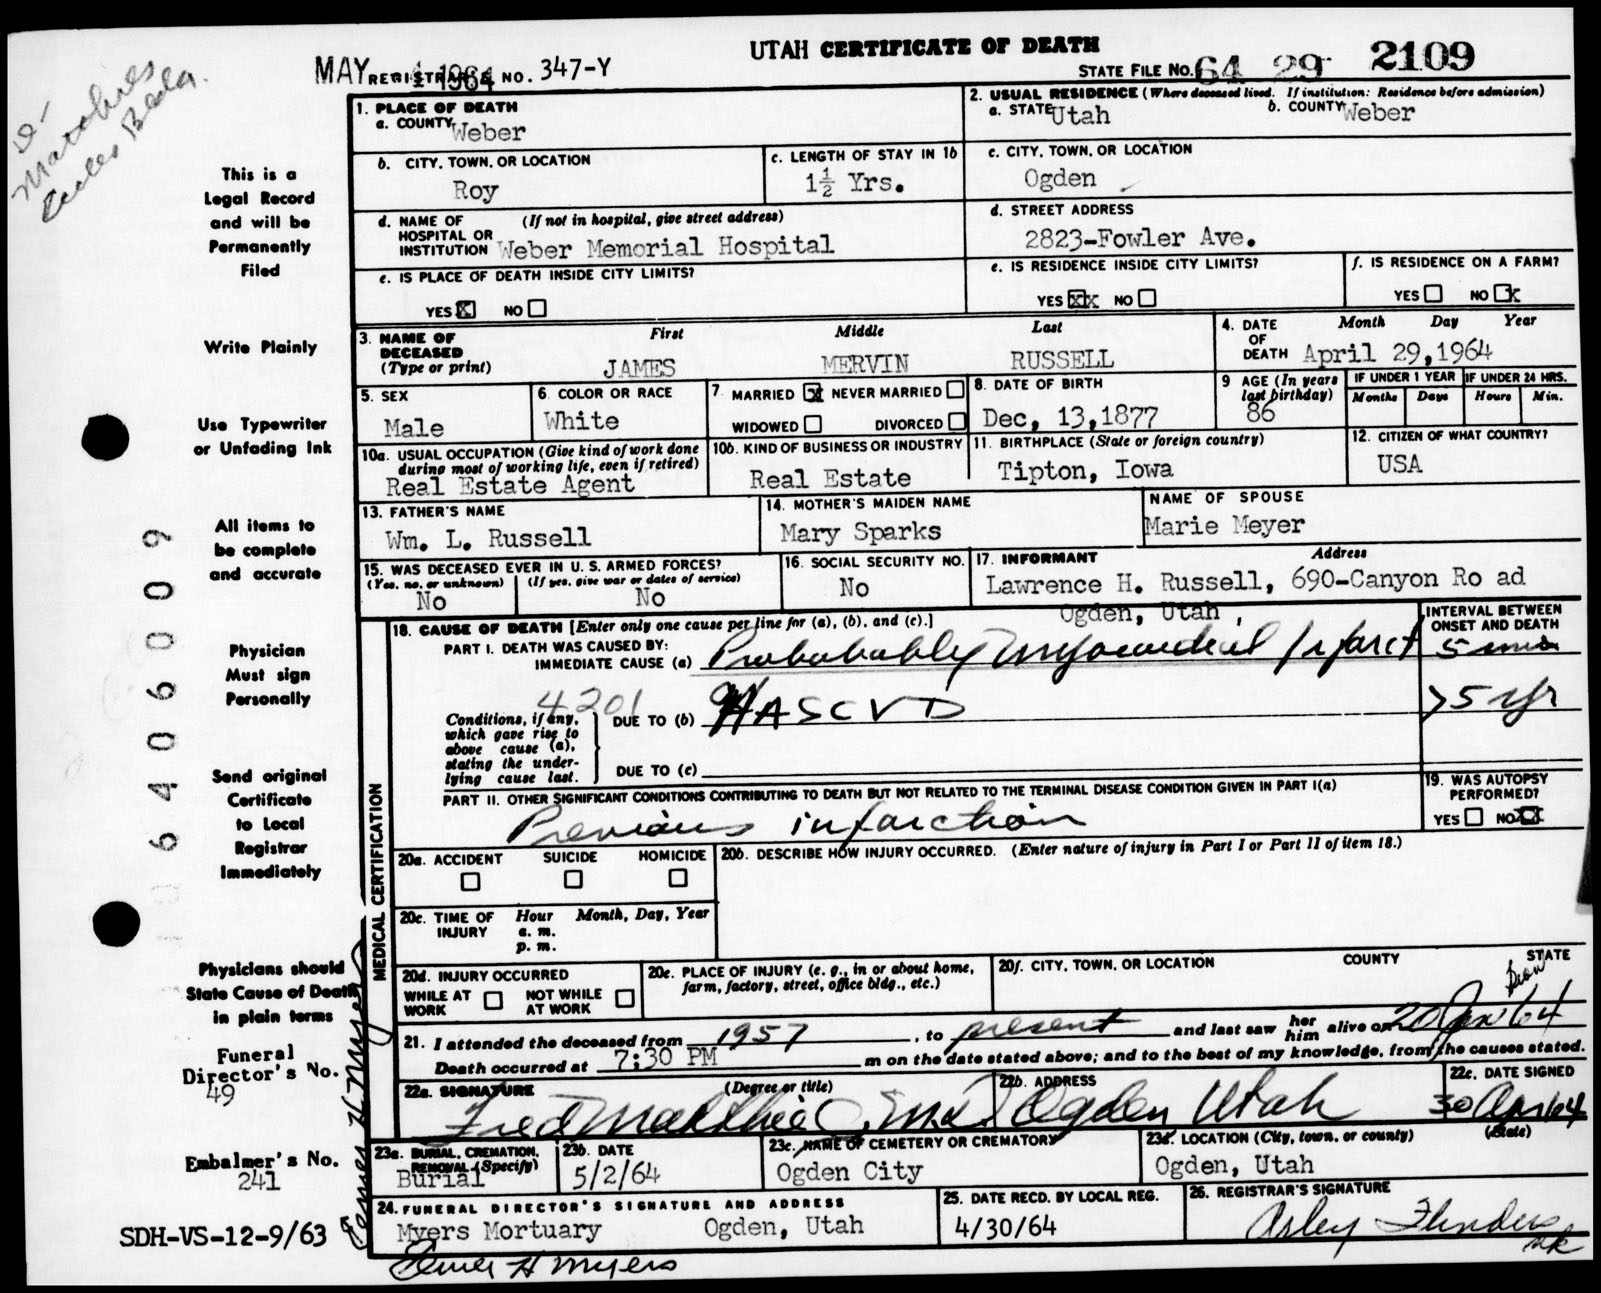 UTAH CERTIFICATE OF DEATH
MAY 1 1964 REGISTRAR'S NO. 347-Y
STATE FILE NO. 64 29 2109
1. PLACE OF DEATH
a. COUNTY Weber
2. USUAL RESIDENCE (Where deceased lived. If institution: Residence before admission)
a. STATE Utah b. COUNTY Weber
b. CITY, TOWN, OR LOCATION
Roy
c. LENGTH OF STAY IN 1b
1½ Yrs.
c. CITY, TOWN, OR LOCATION
Ogden
d. NAME OF HOSPITAL OR INSTITUTION (If not in hospital, give street address)
Weber Memorial Hospital
d. STREET ADDRESS
2823-Fowler Ave.
e. IS PLACE OF DEATH INSIDE CITY LIMITS?
YES X NO
e. IS RESIDENCE INSIDE CITY LIMITS?
YES XX NO
f. IS RESIDENCE ON A FARM?
YES NO X
3. NAME OF DECEASED (Type or print)
First Middle Last
JAMES MERVIN RUSSELL
4. DATE OF DEATH Month Day Year
April 29,1964
5. SEX
Male
6. COLOR OR RACE
White
7. MARRIED X NEVER MARRIED
WIDOWED DIVORCED
8. DATE OF BIRTH
Dec, 13,1877
9 AGE (In years last birthday)
86
IF UNDER 1 YEAR IF UNDER 24 HRS.
Months Days Hours Min.
10a. USUAL OCCUPATION (Give kind of work done during most of working life, even if retired)
Real Estate Agent
10b. KIND OF BUSINESS OR INDUSTRY
Real Estate
11. BIRTHPLACE (State or foreign country)
Tipton, Iowa
12. CITIZEN OF WHAT COUNTRY?
USA
13. FATHER'S NAME
Wm. L. Russell
14. MOTHER'S MAIDEN NAME
Mary Sparks
NAME OF SPOUSE
Marie Meyer
15. WAS DECEASED EVER IN U. S. ARMED FORCES?
(Yes, no, or unknown) (If yes, give war or dates of service)
No No
16. SOCIAL SECURITY NO.
No
17. INFORMANT Address
Lawrence H. Russell, 690-Canyon Ro ad
Ogden, Utah ,
18. CAUSE OF DEATH [Enter only one cause per line for (a), (b), and (c).]
INTERVAL BETWEEN ONSET AND DEATH
PART I. DEATH WAS CAUSED BY:
IMMEDIATE CAUSE (a) Probabably Myocardial Infarct 5 min
4201
Conditions, if any, which gave rise to above cause (a), stating the underlying cause last.
DUE TO (b) HASCVD >5 yr
DUE TO (c)
PART II. OTHER SIGNIFICANT CONDITIONS CONTRIBUTING TO DEATH BUT NOT RELATED TO THE TERMINAL DISEASE CONDITION GIVEN IN PART I(a)
Previous infarction
19. WAS AUTOPSY PERFORMED?
YES NO X
20a. ACCIDENT SUICIDE HOMICIDE
20b. DESCRIBE HOW INJURY OCCURRED. (Enter nature of injury in Part I or Part II of item 18.)
20c. TIME OF INJURY Hour Month, Day, Year
a. m.
p. m.
20d. INJURY OCCURRED
WHILE AT WORK NOT WHILE AT WORK
20e. PLACE OF INJURY (e. g., in or about home, farm, factory, street, office bldg., etc.)
20f. CITY, TOWN, OR LOCATION COUNTY STATE
21. I attended the deceased from 1957, to present and last saw her him alive on 20 Jan 64
Death occurred at 7:30 PM m on the date stated above; and to the best of my knowledge, from the causes stated.
22a. SIGNATURE (Degree or title)
22b. ADDRESS
Ogden Utah
22c. DATE SIGNED
30 Apr 64
23a. BURIAL, CREMATION, REMOVAL (Specify)
Burial
23b. DATE
5/2/64
23c. NAME OF CEMETERY OR CREMATORY
Ogden City
23d. LOCATION (City, town, or county) (State)
Ogden, Utah
24. FUNERAL DIRECTOR'S SIGNATURE AND ADDRESS
Myers Mortuary Ogden, Utah
25. DATE RECD. BY LOCAL REG.
4/30/64
26. REGISTRAR'S SIGNATURE
Elmer H Myers
MEDICAL CERTIFICATION
This is a
Legal Record
and will be
Permanently
Filed
Write Plainly
Use Typewriter
or Unfading Ink
All items to
be complete
and accurate
Physician
Must sign
Personally
Send original
Certificate
to Local
Registrar
Immediately
Physicians should
State Cause of Death
in plain terms
Funeral
Director's No.
49
Embalmer's No.
241
SDH-VS-12-9/63
Elmer H Myers
0 6 4 0 6 0 0 9